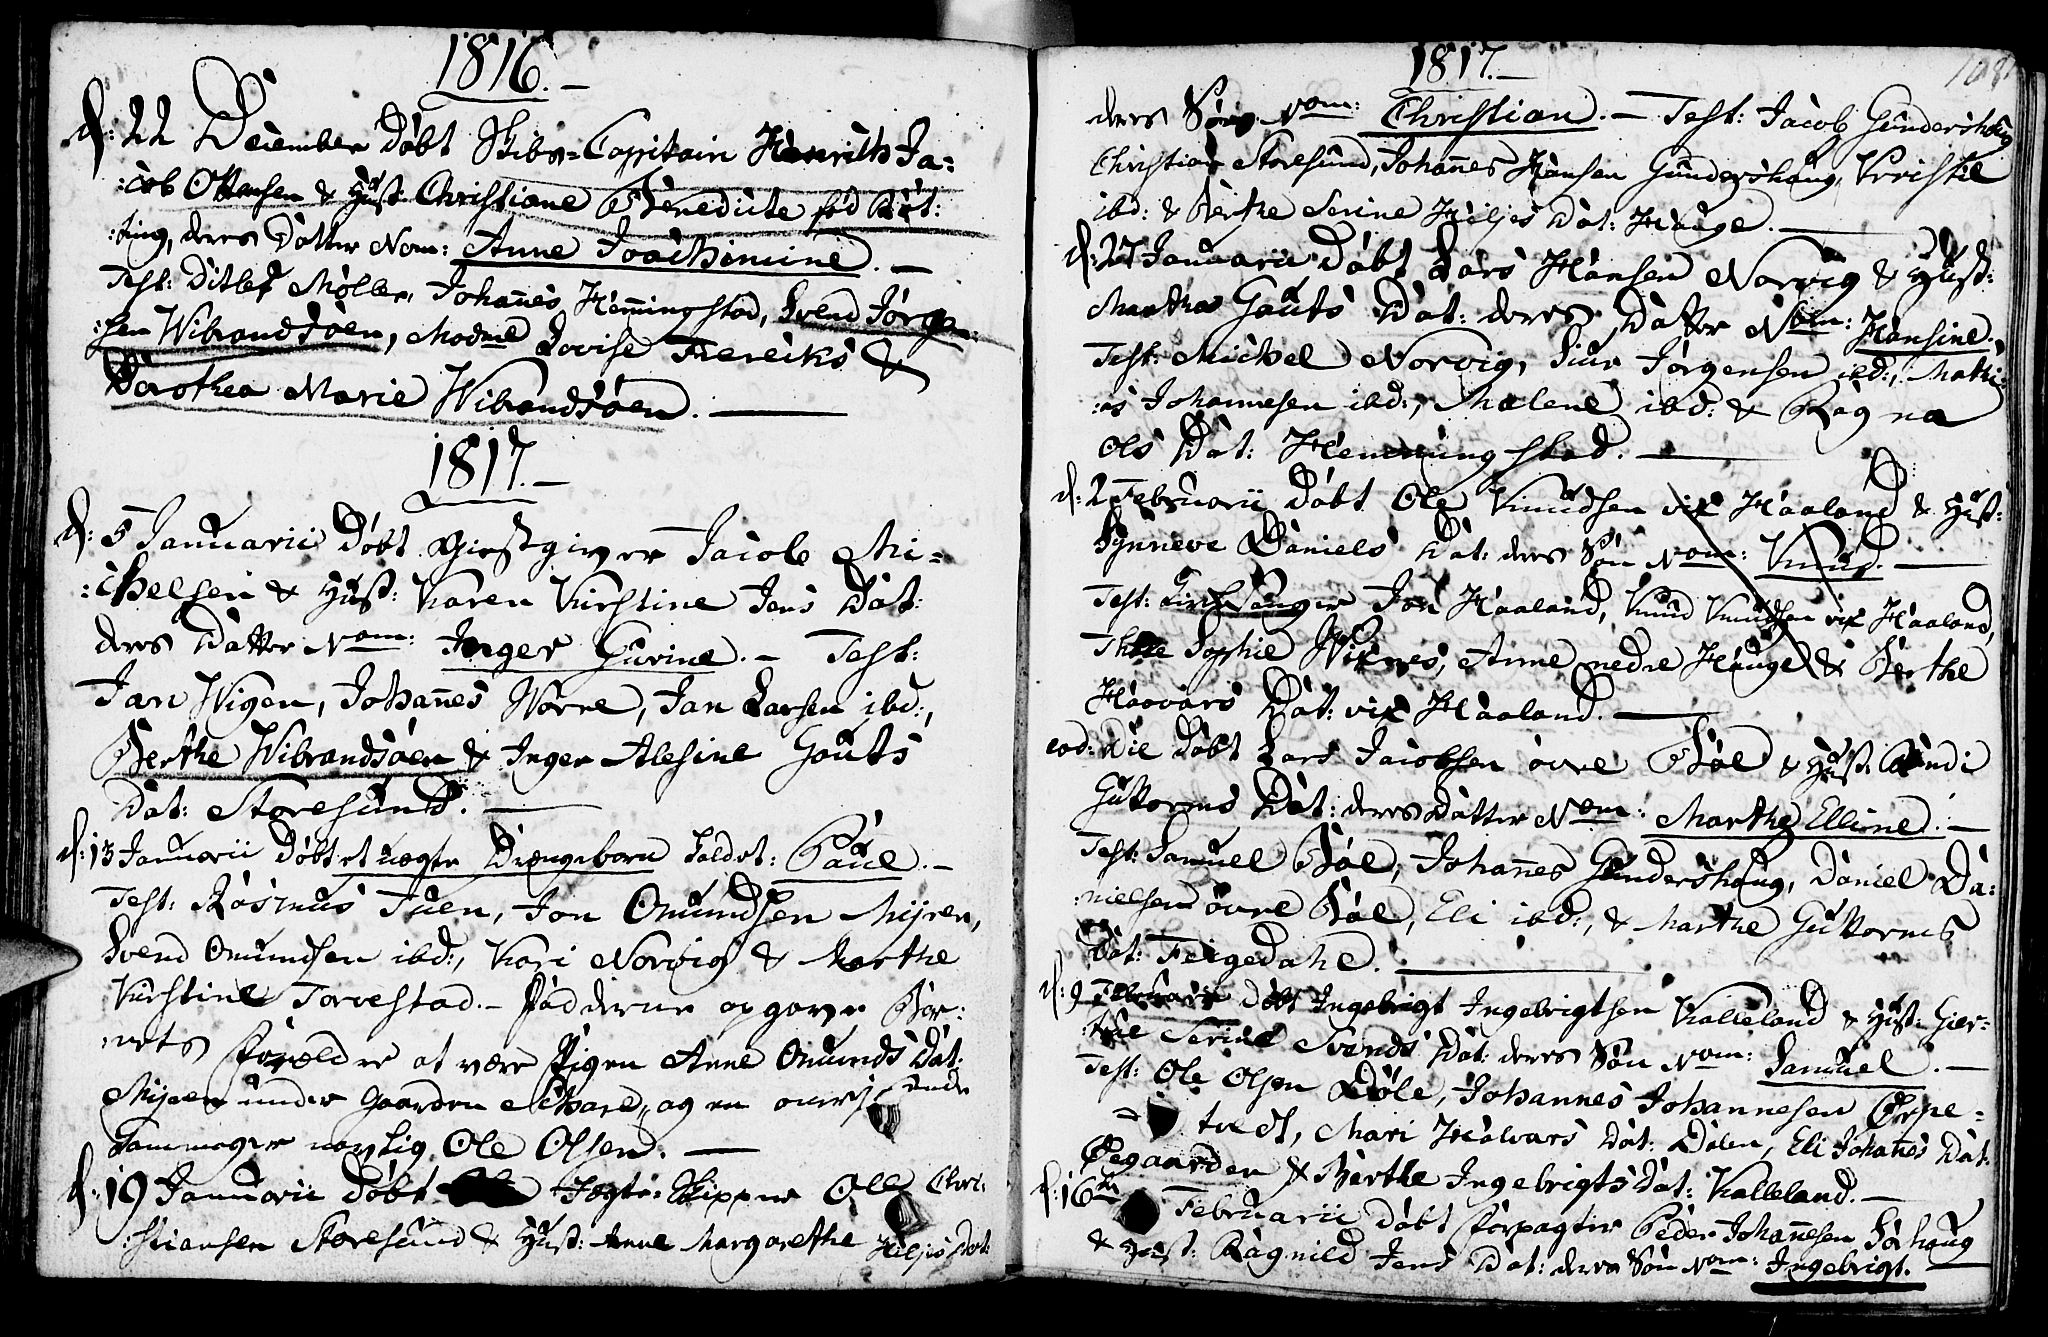 1816.
d: 22 December døbt Skibs-Capitain Henrich Ja-
:cob Ottensen & Hust: Christiane Benedicte fød Büt:
:ting, deres Datter Nom: Anne Joachimine. –
Test: Ditlef Møller, Johañes Hemmingstad, Svend Jørgen:
:sen Wibrandsøen, Madme Lovise Frereiks &
Dorothea Marie Wibrandsøen.
1817.
d: 5 Januarii døbt giestgiver Jacob Mi-
:chelsen & Hust: Karen Kirstine Jens Dat:
deres Datter Nom: Inger Gurine. – Test:
Jan Wigen, Johañes Norre, Jan Larsen ibd:,
Berthe Wibrandsøen & Inger Alesine Gouts
Dat: Storesund.
d: 13 Januarii døbt et uægte Drengebarn kaldet: Paul. –
Test: Rasmus Tuen, Jon Omundsen Myren,
Svend Omundsen ibd:, Kari Norvig & Marthe
Kirstine Torvestad. – Fadderne opgave Bar:
:nets Forældre at være Pigen Anne Omunds Dat:
Myren under Gaarden og en
navnlig Ole Olsen.
d: 19 Januarii døbt Jægte-Skipper Ole Chri:
:stiansen Storesund & Hust: Anne Margarethe Heljes Dat:
1817.
108
deres Søn Nom: Christian. – Test: Jacob Gundershaug
Christian Storesund, Johañes Hansen Gundershaug, Kristie
ibd: & Berthe Serine Heljes Dat: Hauge.
d: 27 Januarii døbt Lars Hansen Norvig & Hust:
Marthe Gauts Dat: deres Datter Nom: Hansine.
Test: Michel Norvig, Siur Jørgensen ibd:, Mathi:
:as Johannesen ibd:, Malene ibd: & Ragna
Ols Dat: Hemmingstad.
d: 2 Februarii døbt Ole Knudsen vix Haaland & Hust:
Synneve Daniels Dat: deres Søn Nom: Knud.
Test: Kirkesanger Jon Haaland, Knud Knudsen vix Haaland,
Sophie Wixnes, Anne nedre Hauge & Berthe
Haavars Dat: vix Haaland.
eod: die døbt Lars Jacobsen øvre Bøe & Hust: Randi
Guttorms Dat: deres Datter Nom: Marthe Elline. –
Test: Samuel Bøe, Johañes Gundershaug, Daniel Da:
:nielsen øvre Bøe, Eli ibd:, & Marthe Guttorms
Dat: Feigedahl.
d: 9 Februarii døbt Ingebrigt Ingebrigtsen Kalleland & Hust: Gier-
:true Serine Svends Dat: deres Søn Nom: Samuel. –
Test: Ole Olsen Døle, Johannes Johannesen Erpe-
= tvedt, Mari Halvars Dat: Dalen, Eli Johañes Dat:
Øegaarden & Berthe Ingebrigts Dat: Kalleland. –
d: 16de Februarii døbt Forpagter Peder Johañesen Sørhaug
& Hust: Ragnild Jens Dat: deres Søn Nom: Ingebrigt.